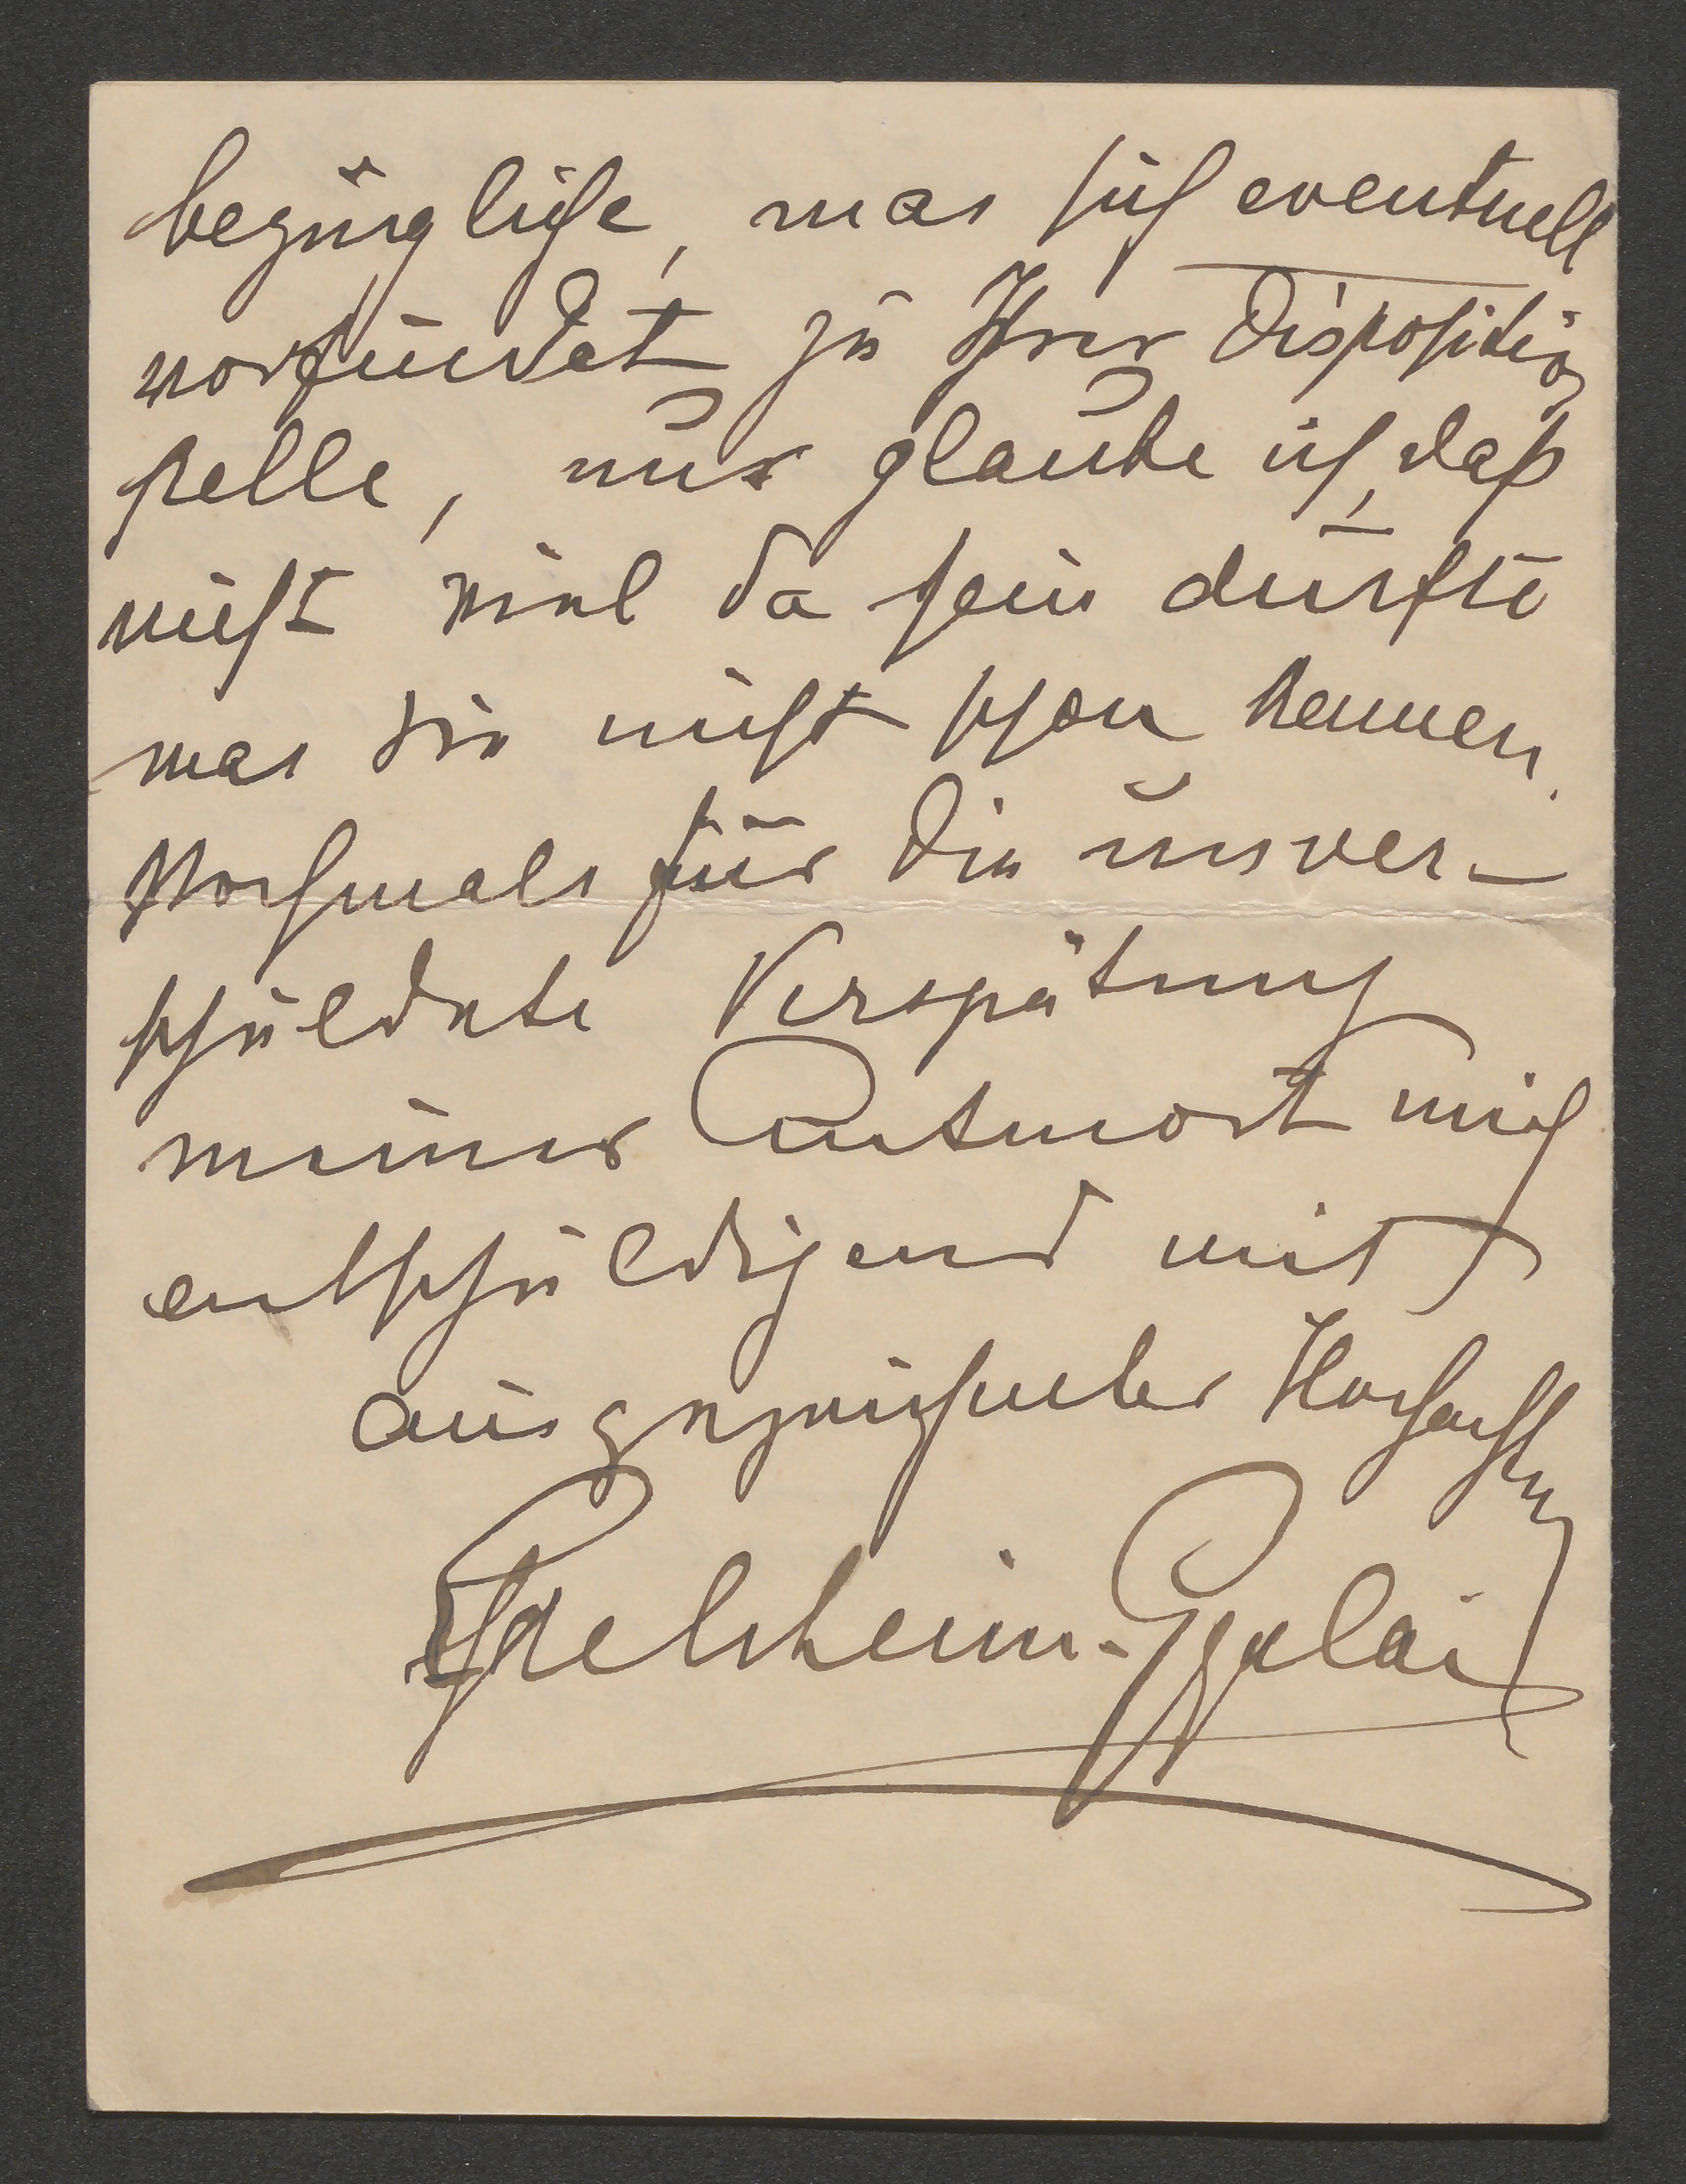 bezügliche, was sich eventuell
vorfindet zu Ihrer Disposition
stelle, nur glaube ich, daß
nicht viel da sein dürfte
was Sie nicht schon kennen.
Nochmals für die unver-
schuldete Verspätung
meiner Antwort mich
entschuldigend mit
ausgezeichneter Hochachtung
Edelsheim-Gyulai